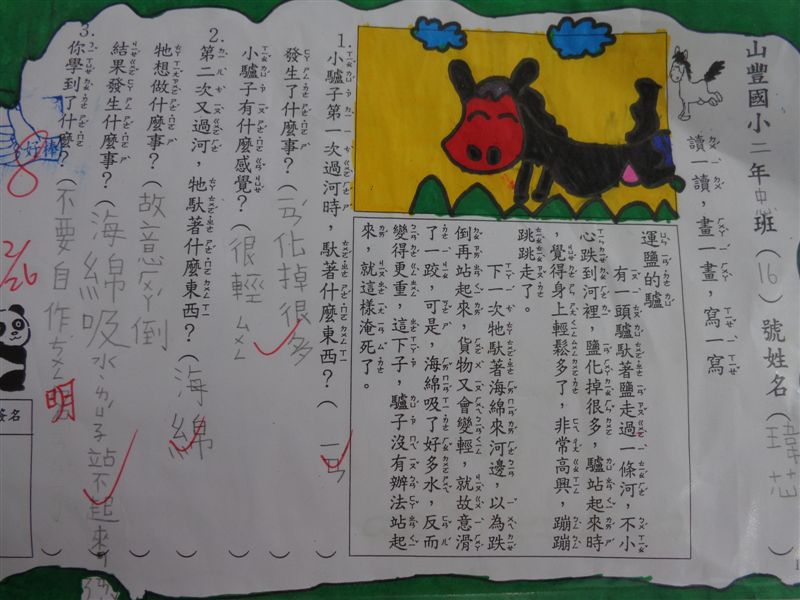 山豐國小二年忠班(16)號姓名(瑋芯)
讀一讀，畫一畫，寫一寫
運鹽的驢
有一頭驢馱著鹽走過一條河，不小
心跌到河裡，鹽化掉很多，驢站起來時
，覺得身上輕鬆多了，非常高興，蹦蹦
跳跳走了。
下一次牠馱著海綿來河邊，以為跌
倒再站起來，貨物又會變輕，就故意滑
了一跤，可是，海綿吸了好多水，反而
變得更重，這下子，驢子沒有辦法站起
來，就這樣淹死了。
1.小驢子第一次過河時，馱著什麼東西？(ㄧㄢˊ)
發生了什麼事？(ㄢˊ化掉很多)
小驢子有什麼感覺？(很輕ㄙㄨㄥ)
2.第二次又過河，牠馱著什麼東西？(海綿)
牠想做什麼事？(故意ㄉㄧㄝˊ倒)
結果發生什麼事？(海綿吸水，ㄌㄩˊ子站不起來)
3.你學到了什麼？(不要自作ㄘㄨㄥ明)
好棒
2/26
簽名